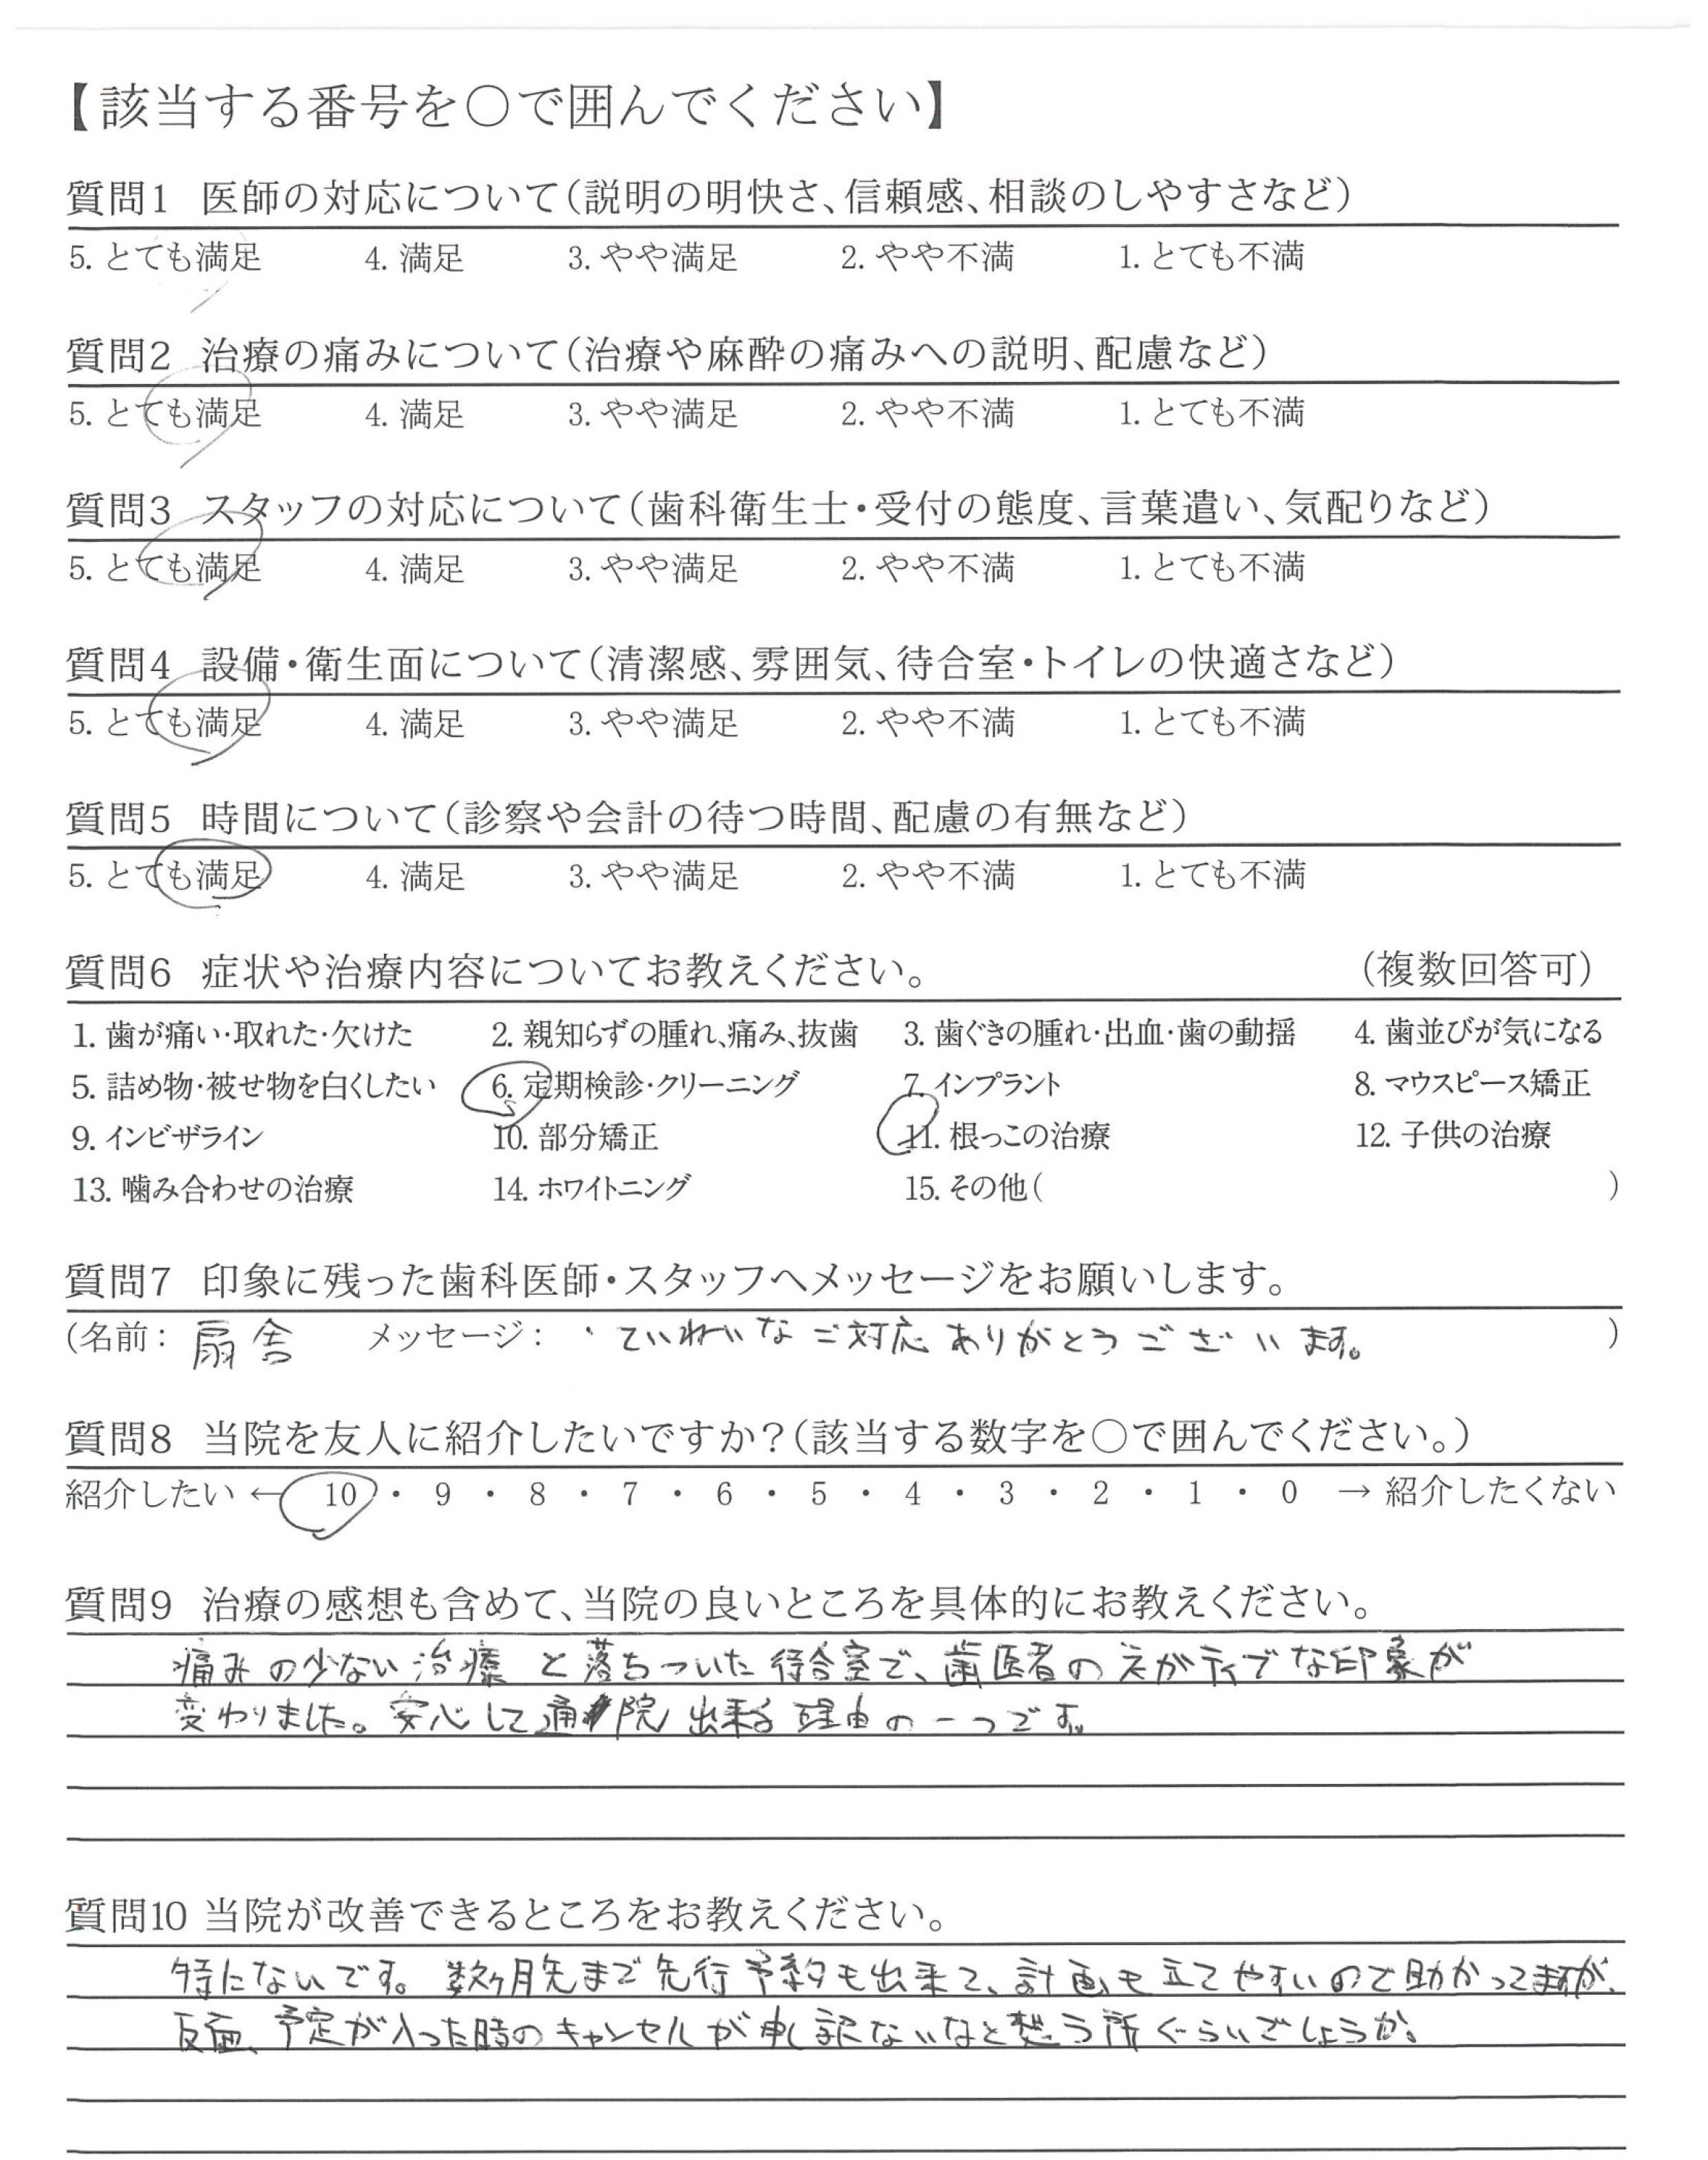 【該当する番号を○で囲んでください】
質問1 医師の対応について(説明の明快さ、信頼感、相談のしやすさなど)
5. とても満足 4. 満足 3. やや満足 2. やや不満 1. とても不満
質問2 治療の痛みについて(治療や麻酔の痛みへの説明、配慮など)
5. とても満足 4. 満足 3. やや満足 2. やや不満 1. とても不満
質問3 スタッフの対応について(歯科衛生士・受付の態度、言葉遣い、気配りなど)
5. とても満足 4. 満足 3. やや満足 2. やや不満 1. とても不満
質問4 設備・衛生面について(清潔感、雰囲気、待合室・トイレの快適さなど)
5. とても満足 4. 満足 3. やや満足 2. やや不満 1. とても不満
質問5 時間について(診察や会計の待つ時間、配慮の有無など)
5. とても満足 4. 満足 3. やや満足 2. やや不満 1. とても不満
質問6 症状や治療内容についてお教えください。 (複数回答可)
1. 歯が痛い・取れた・欠けた 2. 親知らずの腫れ、痛み、抜歯 3. 歯ぐきの腫れ・出血・歯の動揺 4. 歯並びが気になる
5. 詰め物・被せ物を白くしたい 6. 定期検診・クリーニング 7. インプラント 8. マウスピース矯正
9. インビザライン 10. 部分矯正 11. 根っこの治療 12. 子供の治療
13. 噛み合わせの治療 14. ホワイトニング 15. その他( )
質問7 印象に残った歯科医師・スタッフへメッセージをお願いします。
(名前: 扇舎 メッセージ: ・ていねいなご対応ありがとうございます。 )
質問8 当院を友人に紹介したいですか?(該当する数字を○で囲んでください。)
紹介したい ← 10 ・ 9 ・ 8 ・ 7 ・ 6 ・ 5 ・ 4 ・ 3 ・ 2 ・ 1 ・ 0 → 紹介したくない
質問9 治療の感想も含めて、当院の良いところを具体的にお教えください。
痛みの少ない治療と落ちついた待合室で、歯医者のネガティブな印象が
変わりました。安心して通院出来る理由の一つです。
質問10 当院が改善できるところをお教えください。
特にないです。数ヶ月先まで先行予約も出来て、計画も立てやすいので助かってますが、
反面、予定が入った時のキャンセルが申し訳ないなと想う所ぐらいでしょうか。